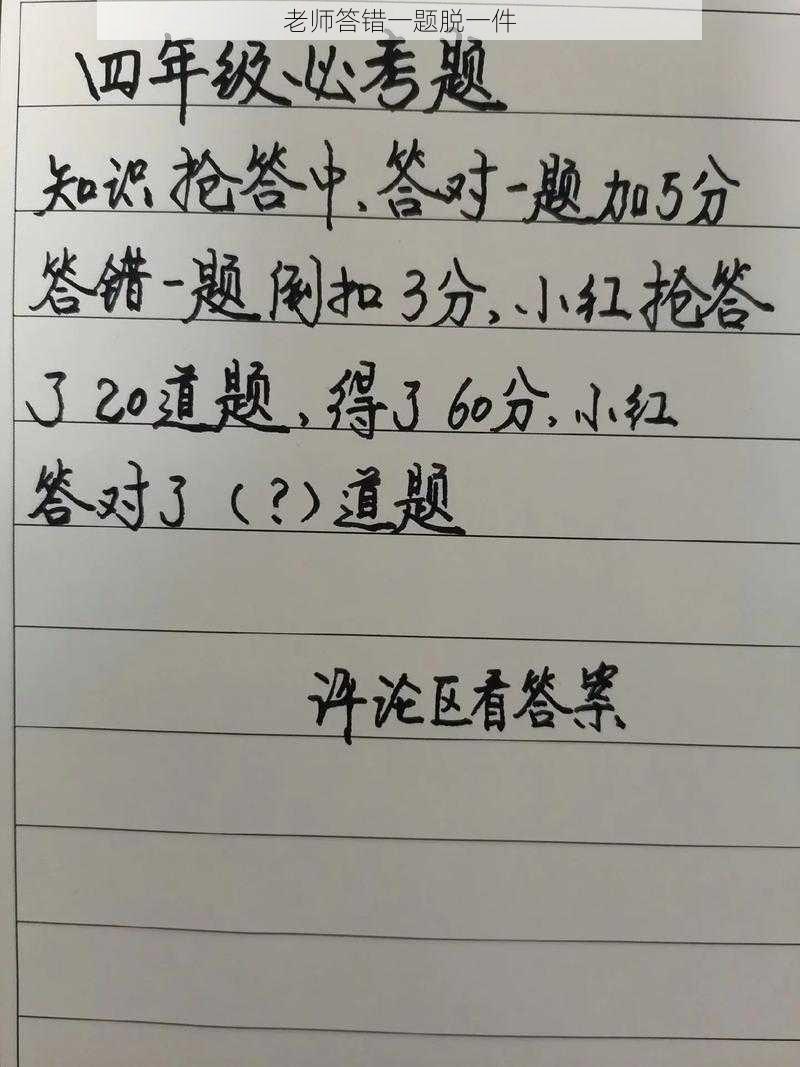 老师答错一题脱一件
四年级必考题
知识抢答中、答对一题加5分
答错一题倒扣3分,小红抢答
了20道题,得了60分,小红
答对了(?)道题
评论区看答案